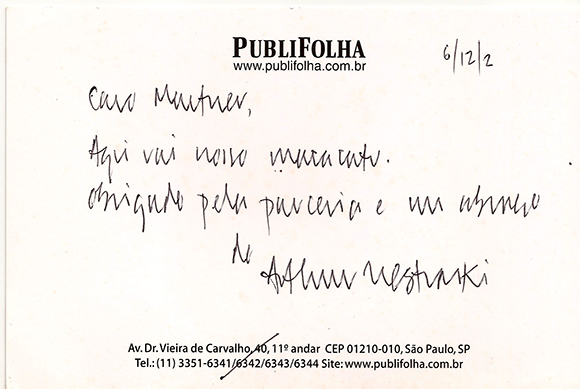 PUBLIFOLHA
www.publifolha.com.br
6/12/2
Caro Martner,
Aqui vai nosso maracatu.
Obrigado pela parceria e um abraço
do Arthur Nestrovski
Av. Dr. Vieira de Carvalho, 40, 11º andar CEP 01210-010, São Paulo, SP
Tel.: (11) 3351-6341/6342/6343/6344 Site: www.publifolha.com.br